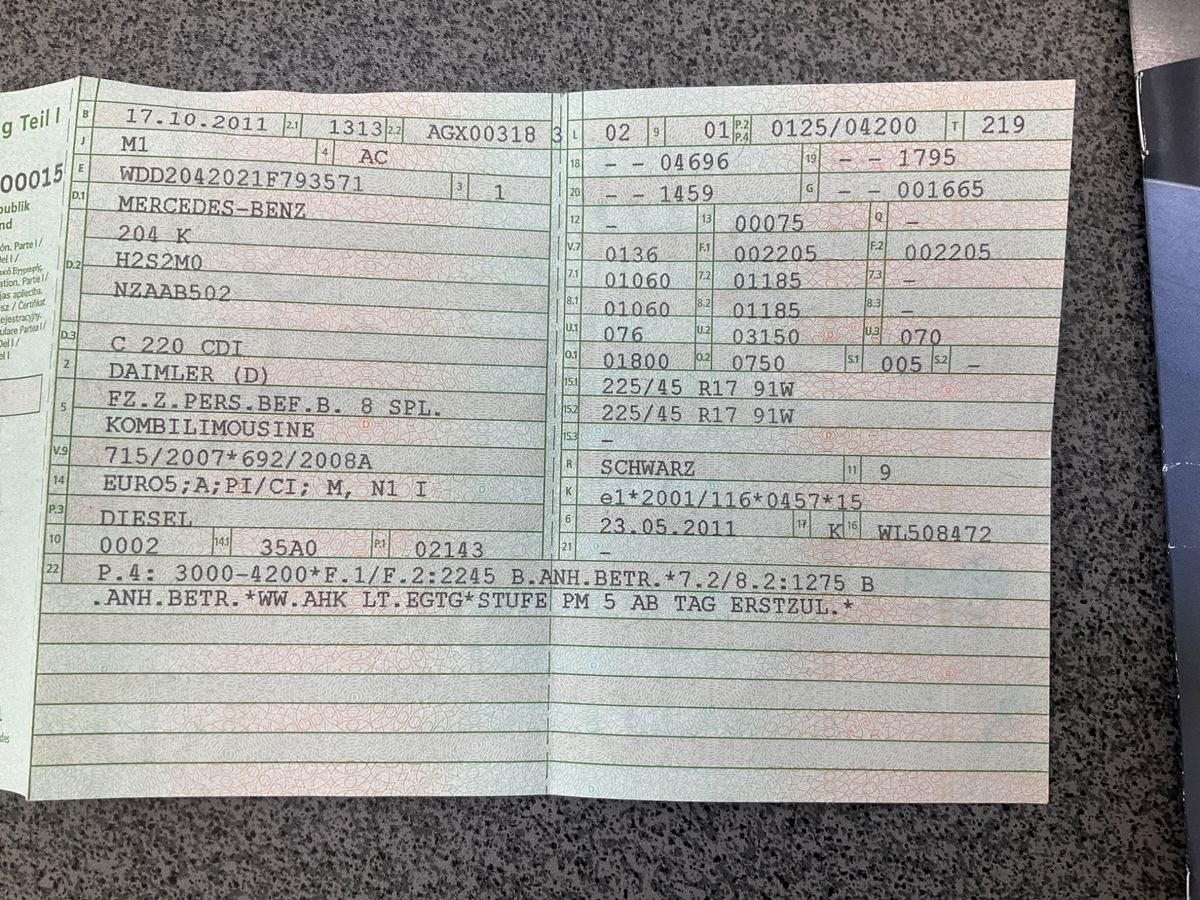 g Teil I
00015
publik
nd
ón. Parte I /
el I /
ation. Parte I /
jas apliecība.
sz / Certifikat
ejestracyjny.
ulare Partea I /
Del I /
el I
des
B 17.10.2011 2.1 1313 2.2 AGX00318 3
J M1 4 AC
E WDD2042021F793571 3 1
D.1 MERCEDES-BENZ
204 K
D.2 H2S2M0
NZAAB502
D.3 C 220 CDI
2 DAIMLER (D)
5 FZ.Z.PERS.BEF.B. 8 SPL.
KOMBILIMOUSINE
V.9 715/2007*692/2008A
14 EURO5;A;PI/CI; M, N1 I
P.3 DIESEL
10 0002 14.1 35A0 P.1 02143
L 02 9 01 P.2 P.4 0125/04200 T 219
18 – – 04696 19 – – 1795
20 – – 1459 G – – 001665
12 – 13 00075 Q –
V.7 0136 F.1 002205 F.2 002205
7.1 01060 7.2 01185 7.3 –
8.1 01060 8.2 01185 8.3 –
U.1 076 U.2 03150 U.3 070
O.1 01800 O.2 0750 S.1 005 S.2 –
15.1 225/45 R17 91W
15.2 225/45 R17 91W
15.3 –
R SCHWARZ 11 9
K e1*2001/116*0457*15
6 23.05.2011 17 K 16 WL508472
21 –
22 P.4: 3000-4200*F.1/F.2:2245 B.ANH.BETR.*7.2/8.2:1275 B
.ANH.BETR.*WW.AHK LT.EGTG*STUFE PM 5 AB TAG ERSTZUL.*